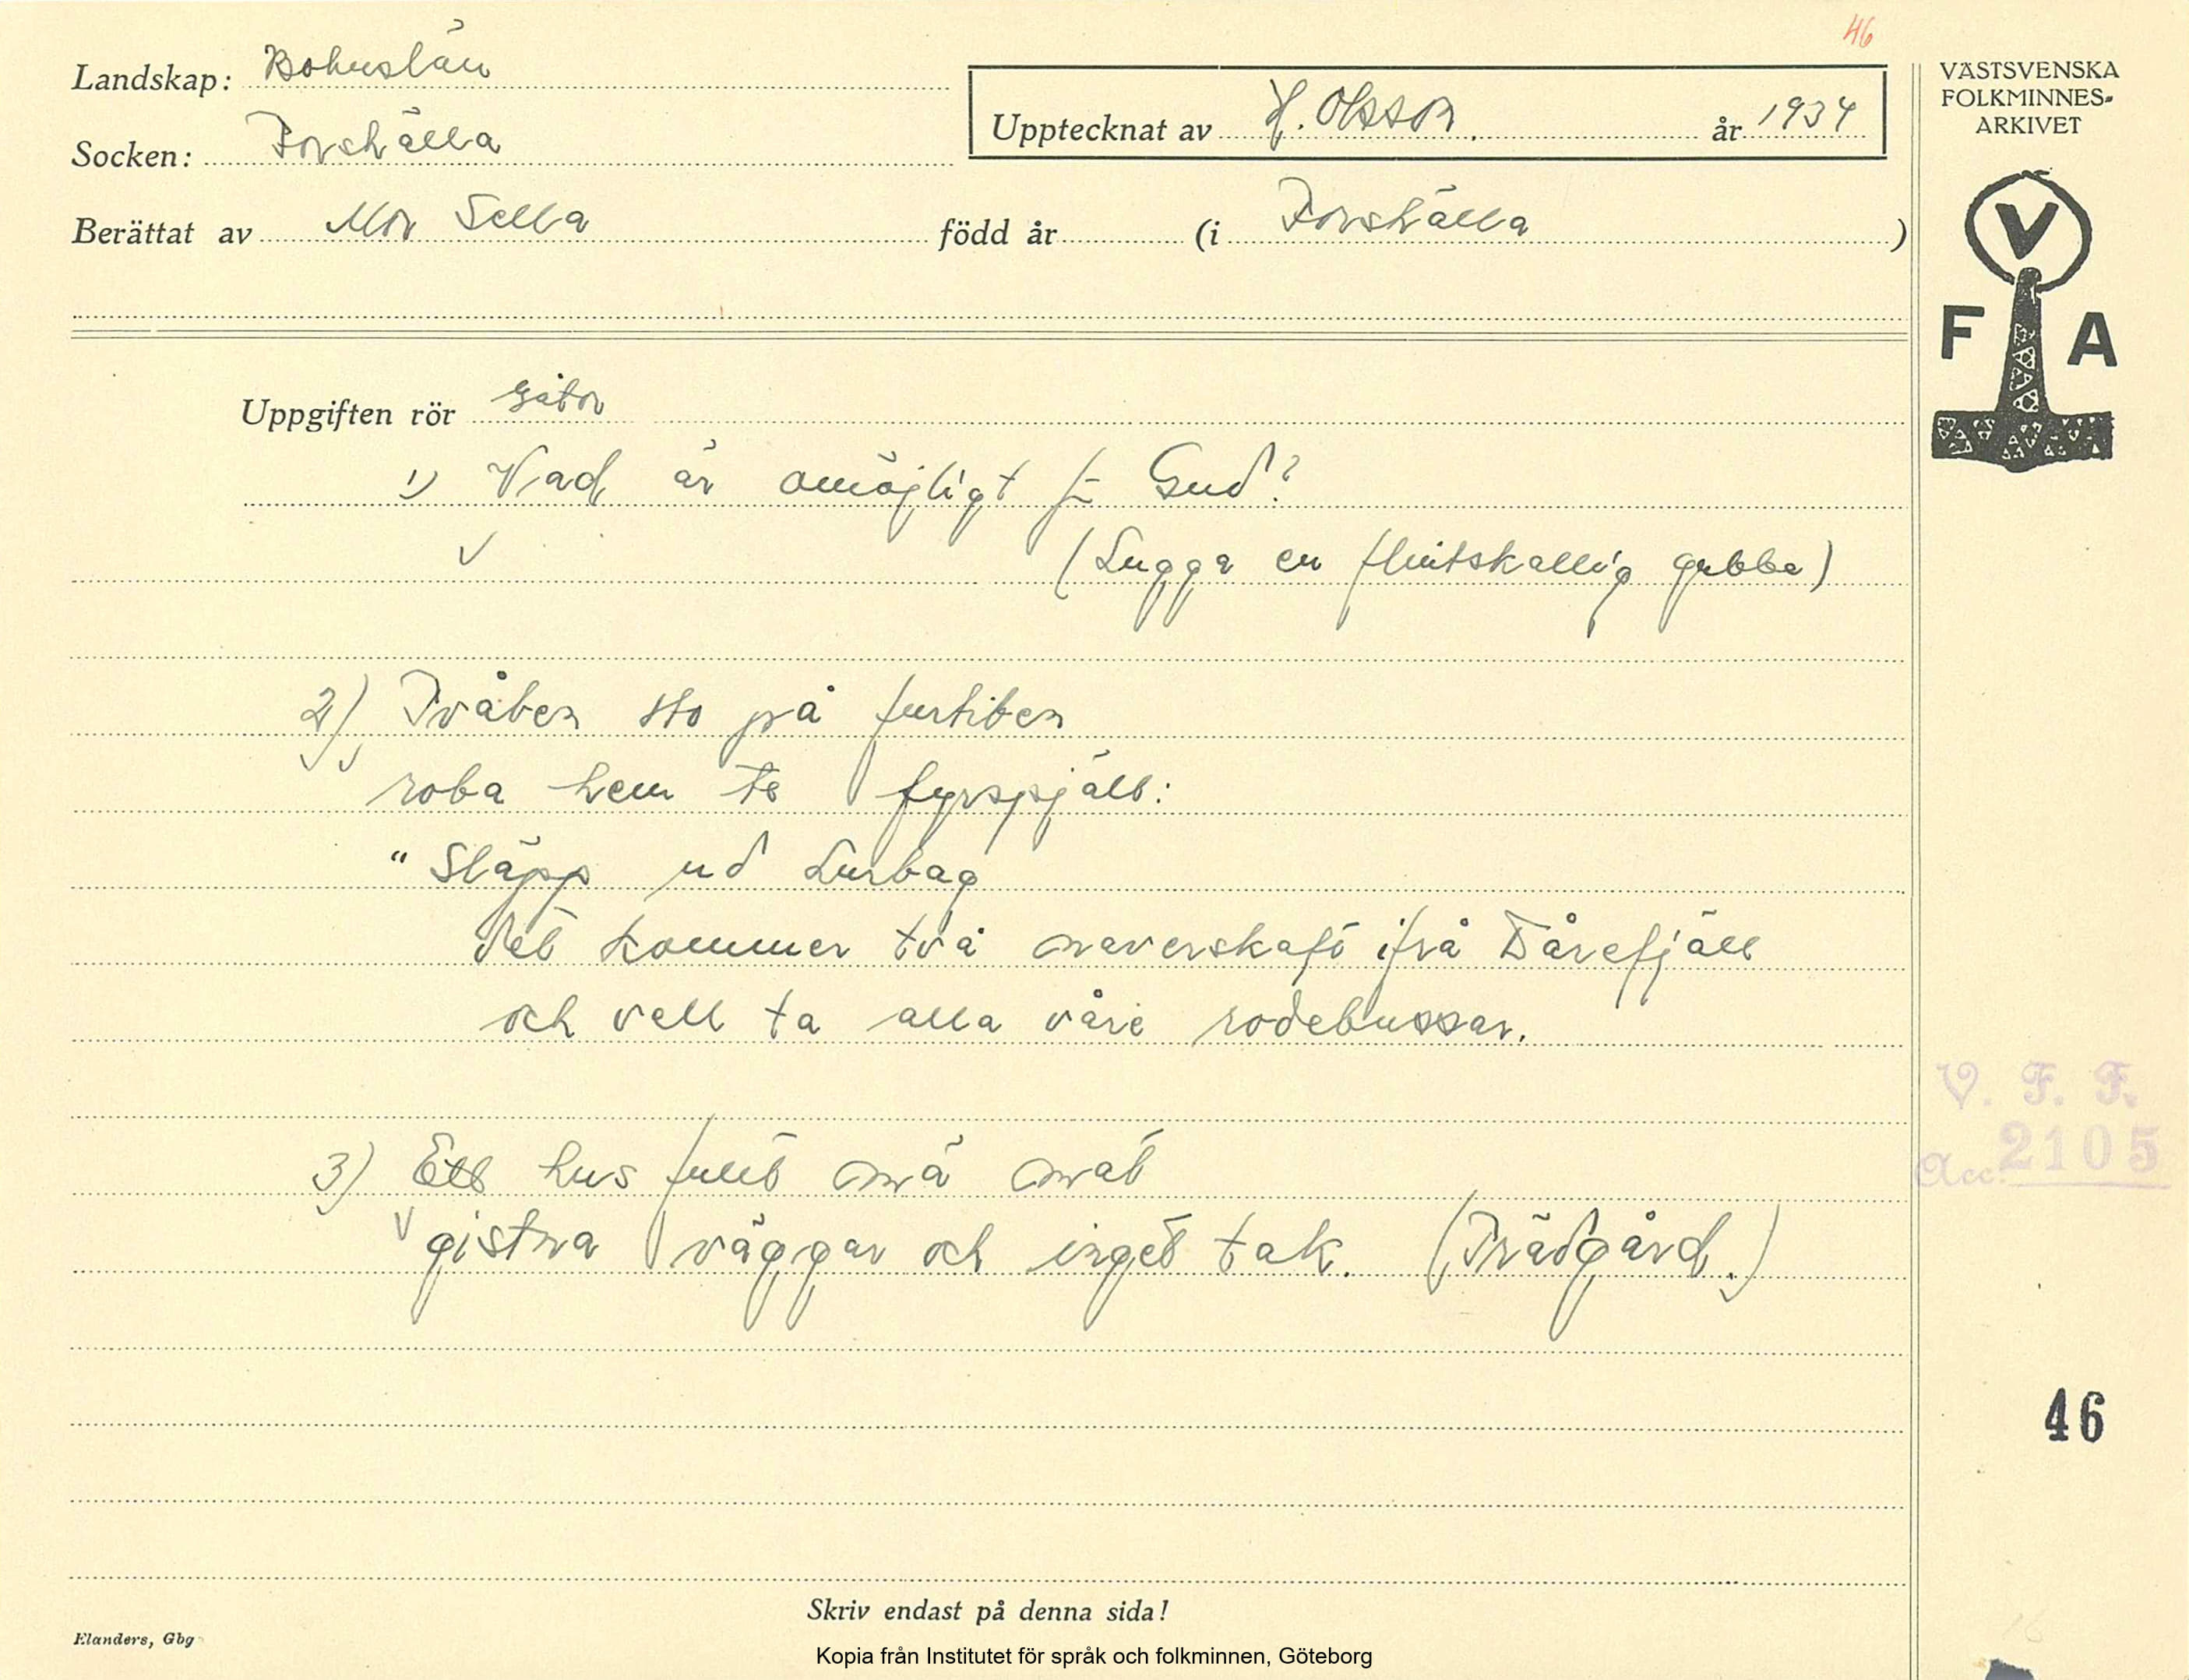 46
Landskap: Bohuslän
Socken: Forshälla
Upptecknat av H. Olsson. år 1934
Berättat av Mor Sella född år (i Forshälla )
VÄSTSVENSKA
FOLKMINNES-
ARKIVET
V
F A
Uppgiften rör gåtor
1) Vad är omöjligt f- Gud?
(Lugga en flintskallig gubbe)
2) Tvåben sto på furtiben
roba hem te fyrspjäll:
"Släpp ud Lurbag
det kommer två naverskaft ifrå Dårefjäll
och vell ta alla våre rodebussar.
3) Ett hus fullt mä mat
gistna väggar och inget tak. (Trädgård.)
V. F. F.
Acc. 2105
46
Skriv endast på denna sida!
Elanders, Gbg
Kopia från Institutet för språk och folkminnen, Göteborg